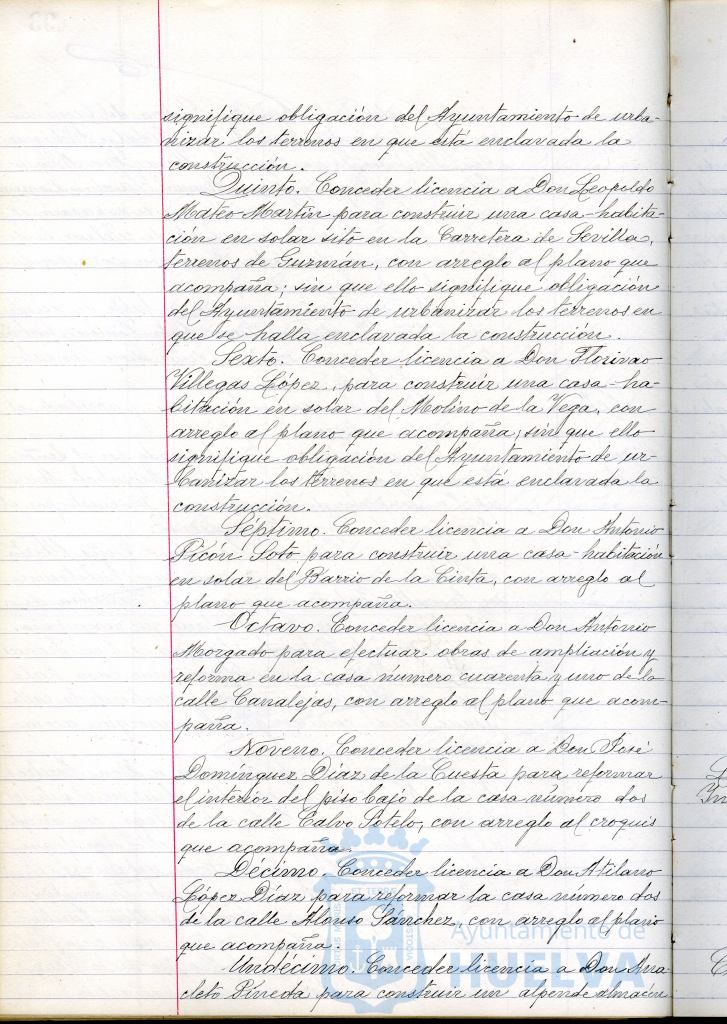 signifique obligación del Ayuntamiento de urba-
nizar los terrenos en que está enclavada la
construcción.
Quinto. Conceder licencia a Don Leopoldo
Mateo Martín para construir una casa-habita-
ción en solar sito en la Carretera de Sevilla,
terrenos de Guzmán, con arreglo al plano que
acompaña; sin que ello signifique obligación
del Ayuntamiento de urbanizar los terrenos en
que se halla enclavada la construcción.
Sexto. Conceder licencia a Don
Villegas López, para construir una casa-ha-
bitación en solar del Molino de la Vega, con
arreglo al plano que acompaña; sin que ello
signifique obligación del Ayuntamiento de ur-
banizar los terrenos en que está enclavada la
construcción.
Séptimo. Conceder licencia a Don Antonio
Picón Soto para construir una casa-habitación
en solar del Barrio de la Cinta, con arreglo al
plano que acompaña.
Octavo. Conceder licencia a Don Antonio
Morgado para efectuar obras de ampliación y
reforma en la casa número cuarenta y uno de la
calle Canalejas, con arreglo al plano que acom-
paña.
Noveno. Conceder licencia a Don José
Domínguez Díaz de la Cuesta para reformar
el interior del piso bajo de la casa número dos
de la calle Calvo Sotelo, con arreglo al croquis
que acompaña.
Décimo. Conceder licencia a Don Atilano
López Díaz para reformar la casa número dos
de la calle Alonso Sánchez, con arreglo al plano
que acompaña.
Undécimo. Conceder licencia a Don Ana-
cleto Pineda para construir un alpende almacén
Ayuntamiento de
HUELVA